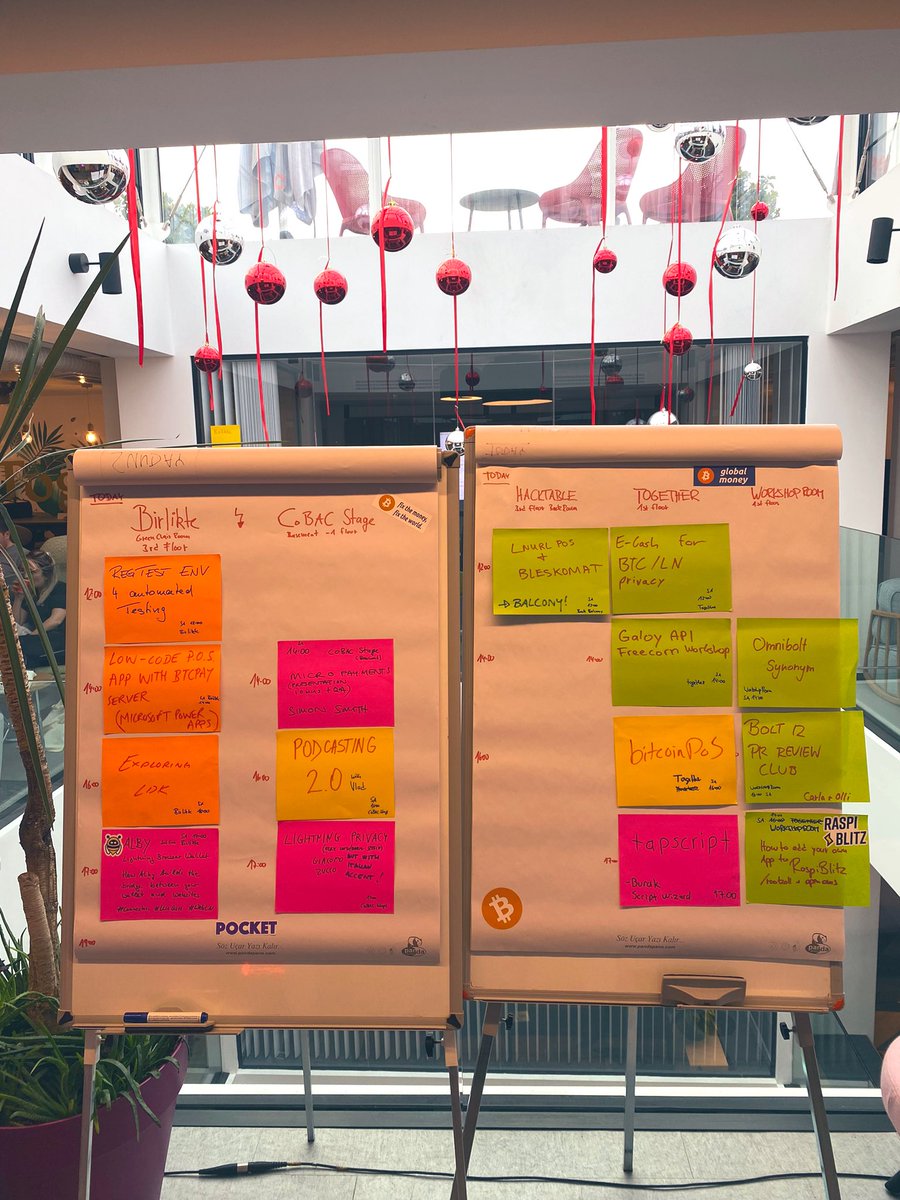 TODAY
Birlikte
Green Chair Room
3rd Floor
CoBAC Stage
Basement -1 floor
fix the money,
fix the world.
12:00
REGTEST ENV
4 automated
Testing
Birlikte
14:00
LOW-CODE P.O.S.
APP WITH BTCPAY
SERVER
(MICROSOFT POWER
APPS)
14:00
14:00 CoBAC Stage
MICRO PAYMENTS
(PRESENTATION
SIMON SMITH
16:00
EXPLORING
LDK
Birlikte
16:00
PODCASTING
2.0 with
Vlad
17:00
ALBY
Lightning Browser Wallet
17:00
LIGHTNING PRIVACY
GIACOMO
ZUCCO
BUT WITH
ITALIAN
ACCENT!
19:00
POCKET
Söz Uçar Yazı Kalır...
www.pandapano.com
panda
TODAY
global
money
HACKTABLE
3rd floor Back Room
TOGETHER
1st floor
WORKSHOP ROOM
1st floor
12:00
LNURL POS
+
BLESKOMAT
→ BALCONY!
E-Cash for
BTC/LN
privacy
Together
14:00
14:00
Galoy API
Freecorn Workshop
together 14:00
Omnibolt
Synonym
16:00
bitcoinPoS
Together
16:00
BOLT 12
PR REVIEW
CLUB
Carla + Olli
17:00
tapscript
-Burak
Script wizard 17:00
WORKSHOPROOM
RASPI
BLITZ
How to add your own
App to RaspiBlitz
Söz Uçar Yazı Kalır...
www.pandapano.com
panda